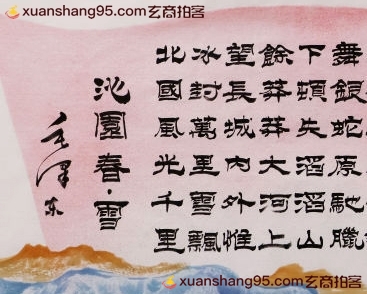 xuanshang95.com玄商拍客
毛澤東
沁園春·雪
北國風光千里
冰封萬里雪飄
望長城内外惟
餘莽莽大河上
下頓失滔滔山
舞銀蛇原馳臘
xuanshang95.com玄商拍客